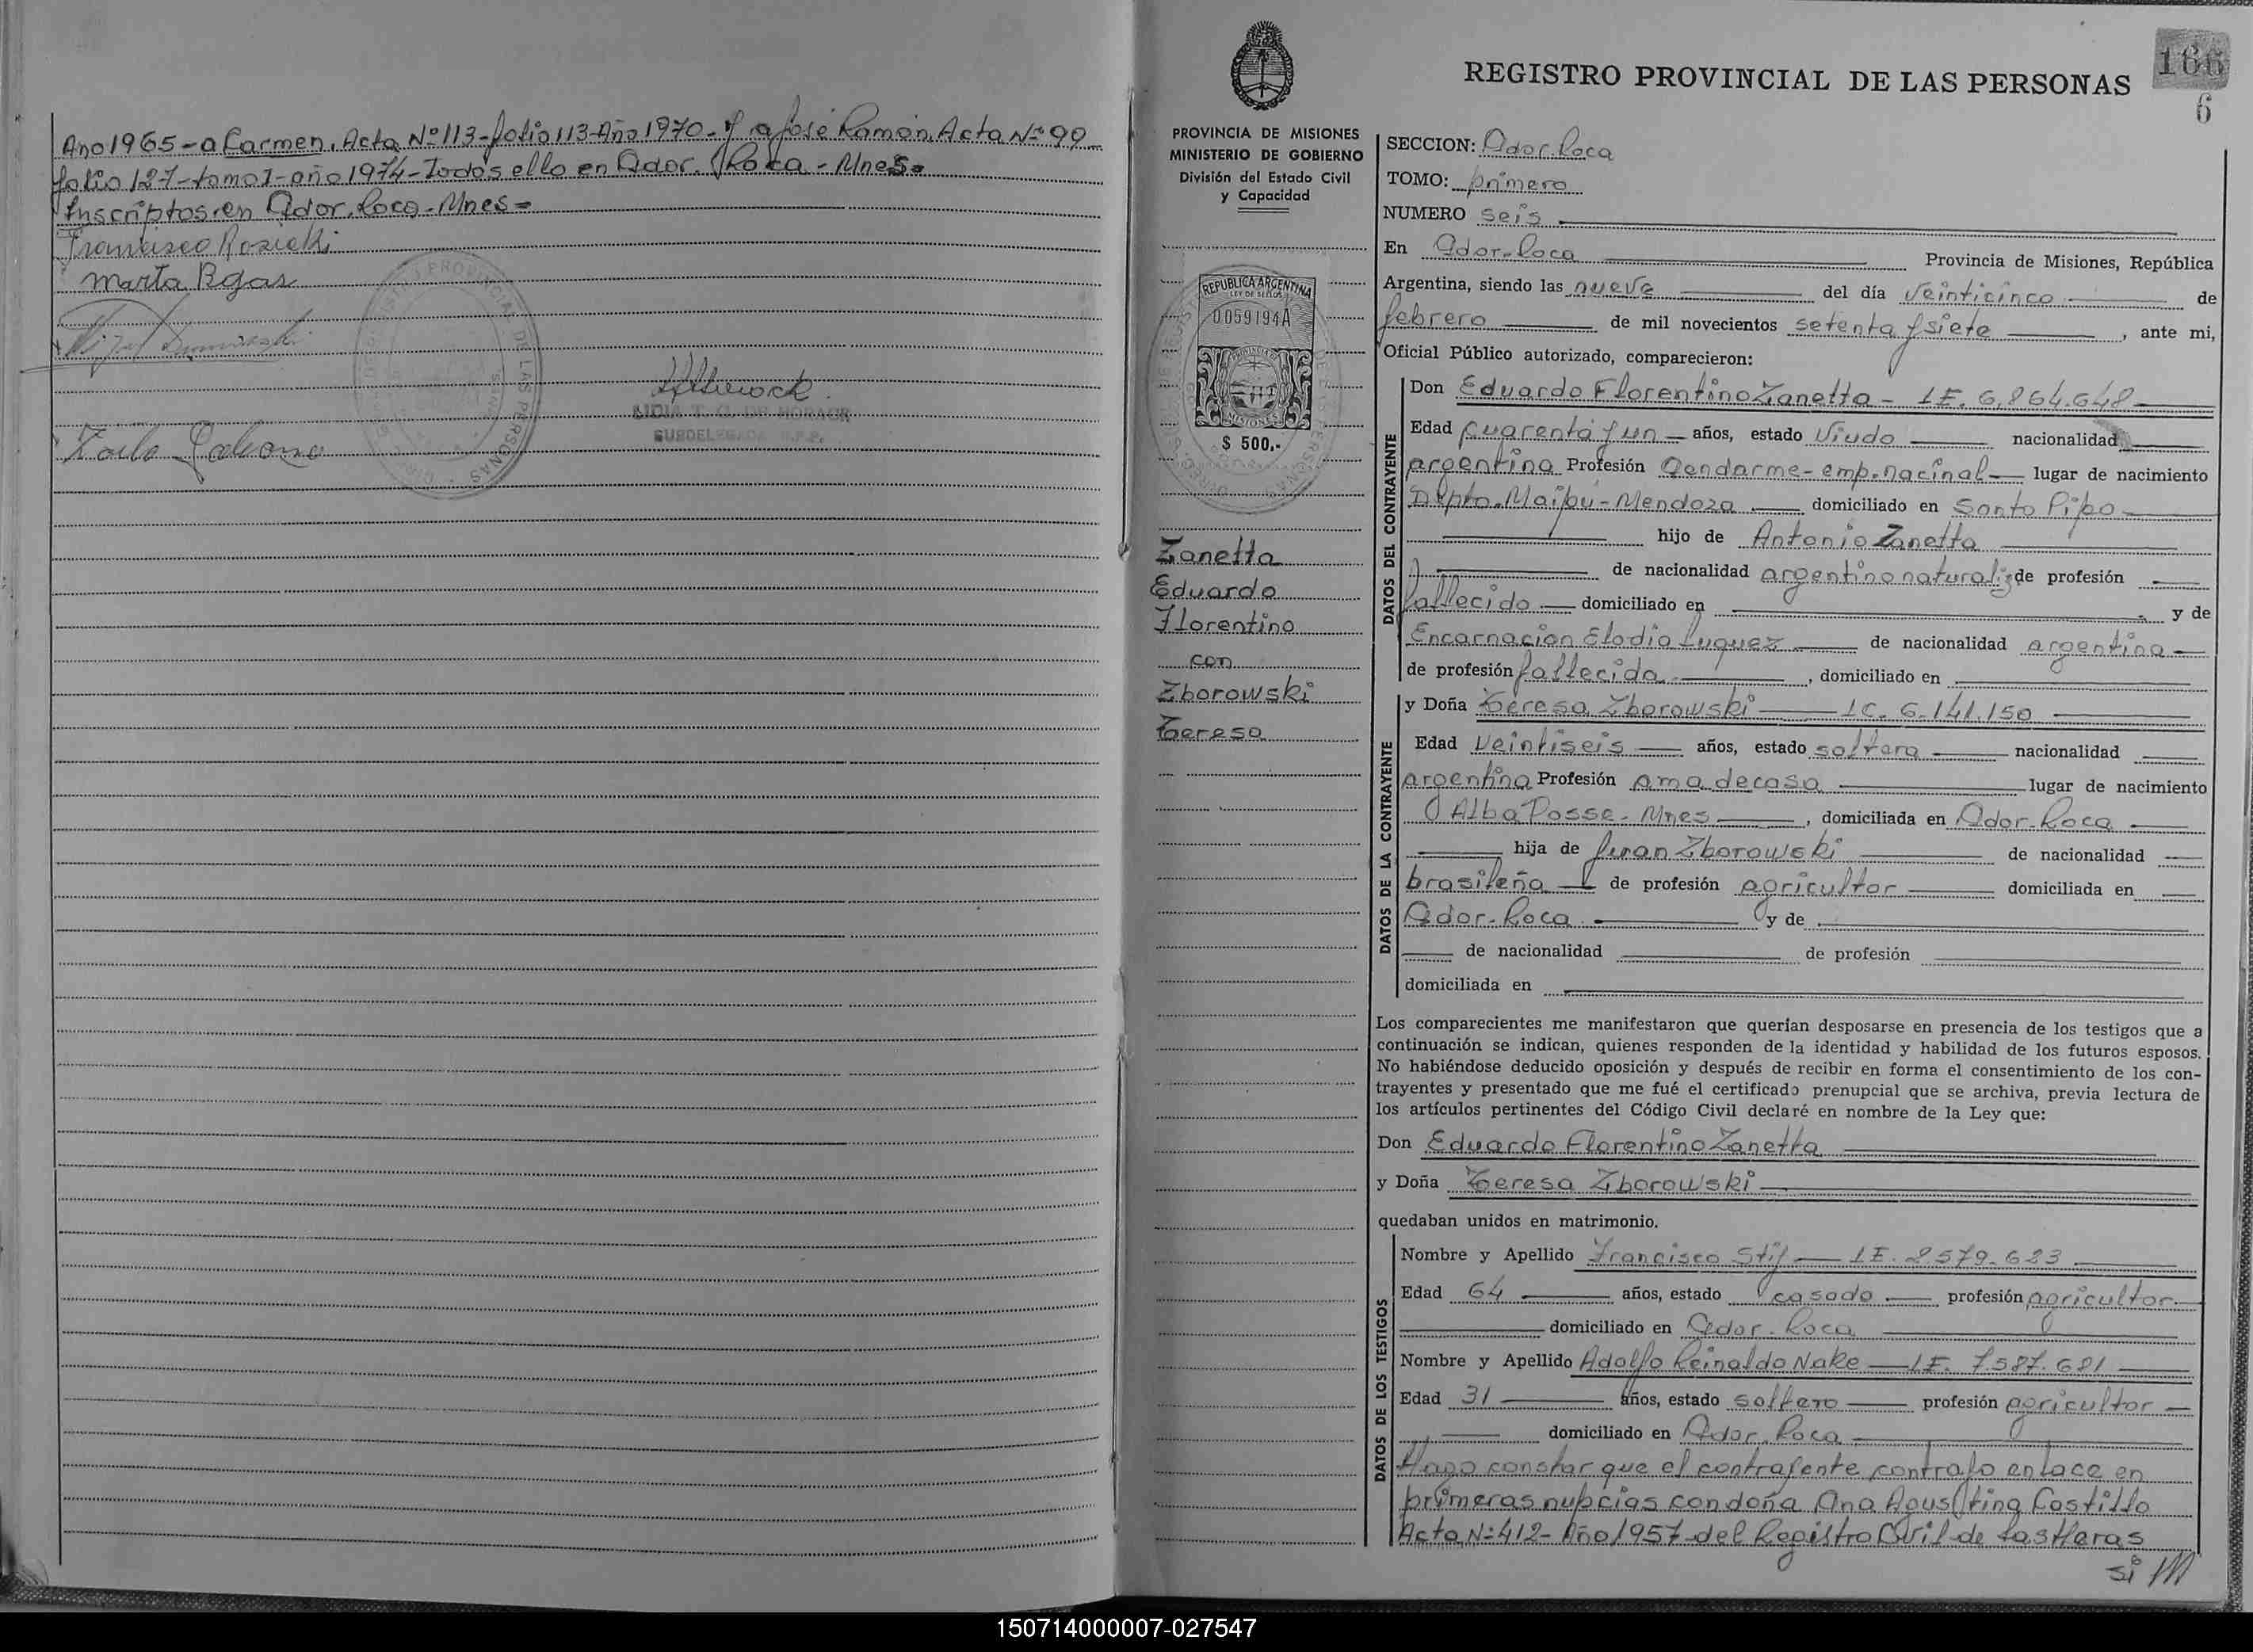 Ano 1965-a Carmen, Acta Nº 113-folio 113-Año 1970- y a José Ramón, Acta Nº 99
folio 127-tomo I-año 1974-Todos ello en Gdor. Roca-Mnes-
Inscriptos en Gdor. Roca-Mnes-
Francisco Rosicki
Marta Rojas
LIDIA T. G. DE
SUBDELEGADA R.P.P.
166
6
REGISTRO PROVINCIAL DE LAS PERSONAS
PROVINCIA DE MISIONES
MINISTERIO DE GOBIERNO
División del Estado Civil
y Capacidad
REPUBLICA ARGENTINA
LEY DE SELLOS
0059194A
MISIONES
$ 500.-
Zanetta
Eduardo
Florentino
con
Zborowski
Teresa
SECCION: Gdor. Roca
TOMO: primero
NUMERO seis
En Gdor. Roca Provincia de Misiones, República
Argentina, siendo las nueve del día veinticinco de
febrero de mil novecientos setenta y siete, ante mi,
Oficial Público autorizado, comparecieron:
DATOS DEL CONTRAYENTE
Don Eduardo Florentino Zanetta - LE. 6.864.648
Edad cuarenta y un años, estado viudo nacionalidad
argentina Profesión Gendarme-emp. nacinal lugar de nacimiento
Depto. Maipú-Mendoza domiciliado en Santo Pipo
hijo de Antonio Zanetta
de nacionalidad argentino naturaliz de profesión
fallecido domiciliado en y de
Encarnacion Elodia Luquez de nacionalidad argentina
de profesión fallecida, domiciliado en
DATOS DE LA CONTRAYENTE
y Doña Teresa Zborowski LC. 6.141.150
Edad veintiseis años, estado soltera nacionalidad
argentina Profesión ama de casa lugar de nacimiento
Alba Posse-Mnes, domiciliada en Gdor. Roca
hija de Juan Zborowski de nacionalidad
brasileña de profesión agricultor domiciliada en
Gdor. Roca y de
de nacionalidad de profesión
domiciliada en
Los comparecientes me manifestaron que querían desposarse en presencia de los testigos que a
continuación se indican, quienes responden de la identidad y habilidad de los futuros esposos.
No habiéndose deducido oposición y después de recibir en forma el consentimiento de los con-
trayentes y presentado que me fué el certificado prenupcial que se archiva, previa lectura de
los artículos pertinentes del Código Civil declaré en nombre de la Ley que:
Don Eduardo Florentino Zanetta
y Doña Teresa Zborowski
quedaban unidos en matrimonio.
DATOS DE LOS TESTIGOS
Nombre y Apellido Francisco Stif LE. 2.579.623
Edad 64 años, estado casado profesión agricultor
domiciliado en Gdor. Roca
Nombre y Apellido Adolfo Reinaldo Nake LE. 7.587.681
Edad 31 años, estado soltero profesión agricultor
domiciliado en Gdor. Roca
Hago constar que el contrayente contrajo enlace en
primeras nupcias con doña Ana Agustina Castillo
Acta Nº 412-Año 1957-del Registro Civil de las Heras
si
150714000007-027547